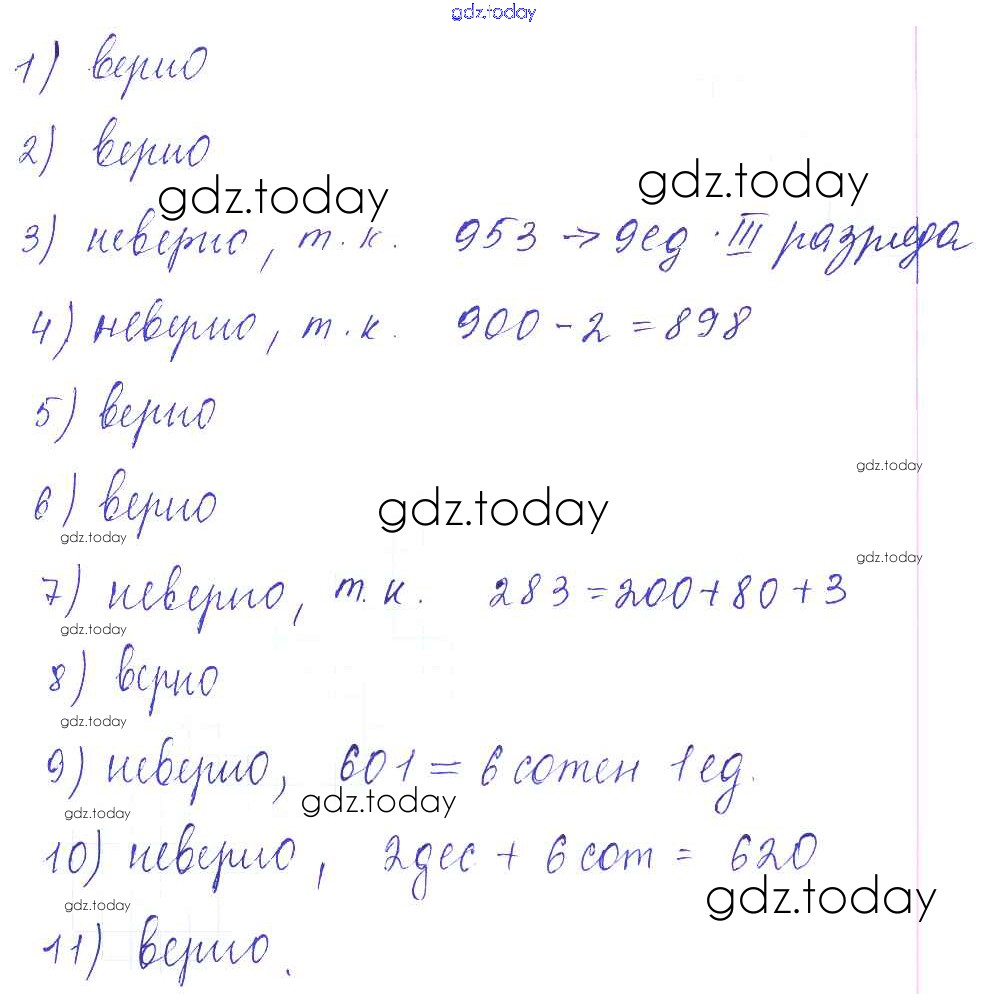 gdz.today
1) верно
2) верно
gdz.today gdz.today
3) неверно, т.к. 953 → 9ед. III разряда
4) неверно, т.к. 900 - 2 = 898
5) верно
gdz.today
6) верно
gdz.today
gdz.today
gdz.today
7) неверно, т.к. 283 = 200 + 80 + 3
gdz.today
8) верно
gdz.today
9) неверно, 601 = 6 сотен 1 ед.
gdz.today
gdz.today
10) неверно, 2 дес + 6 сот = 620
gdz.today
gdz.today
11) верно.